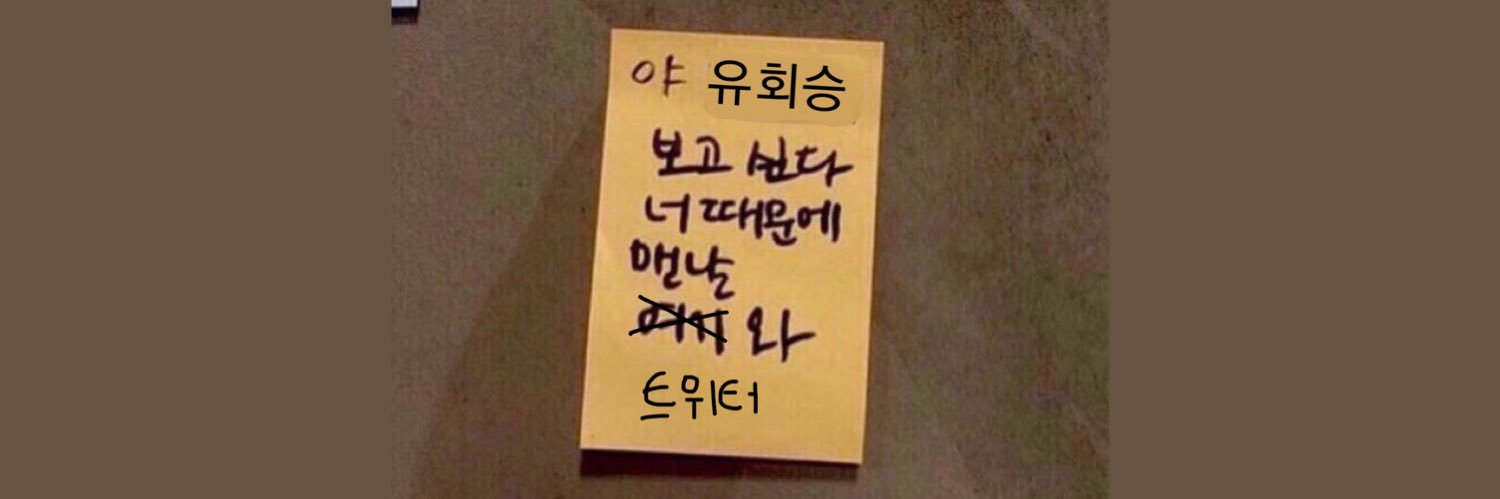 야 유회승
보고 싶다
너 때문에
맨날
와
트위터